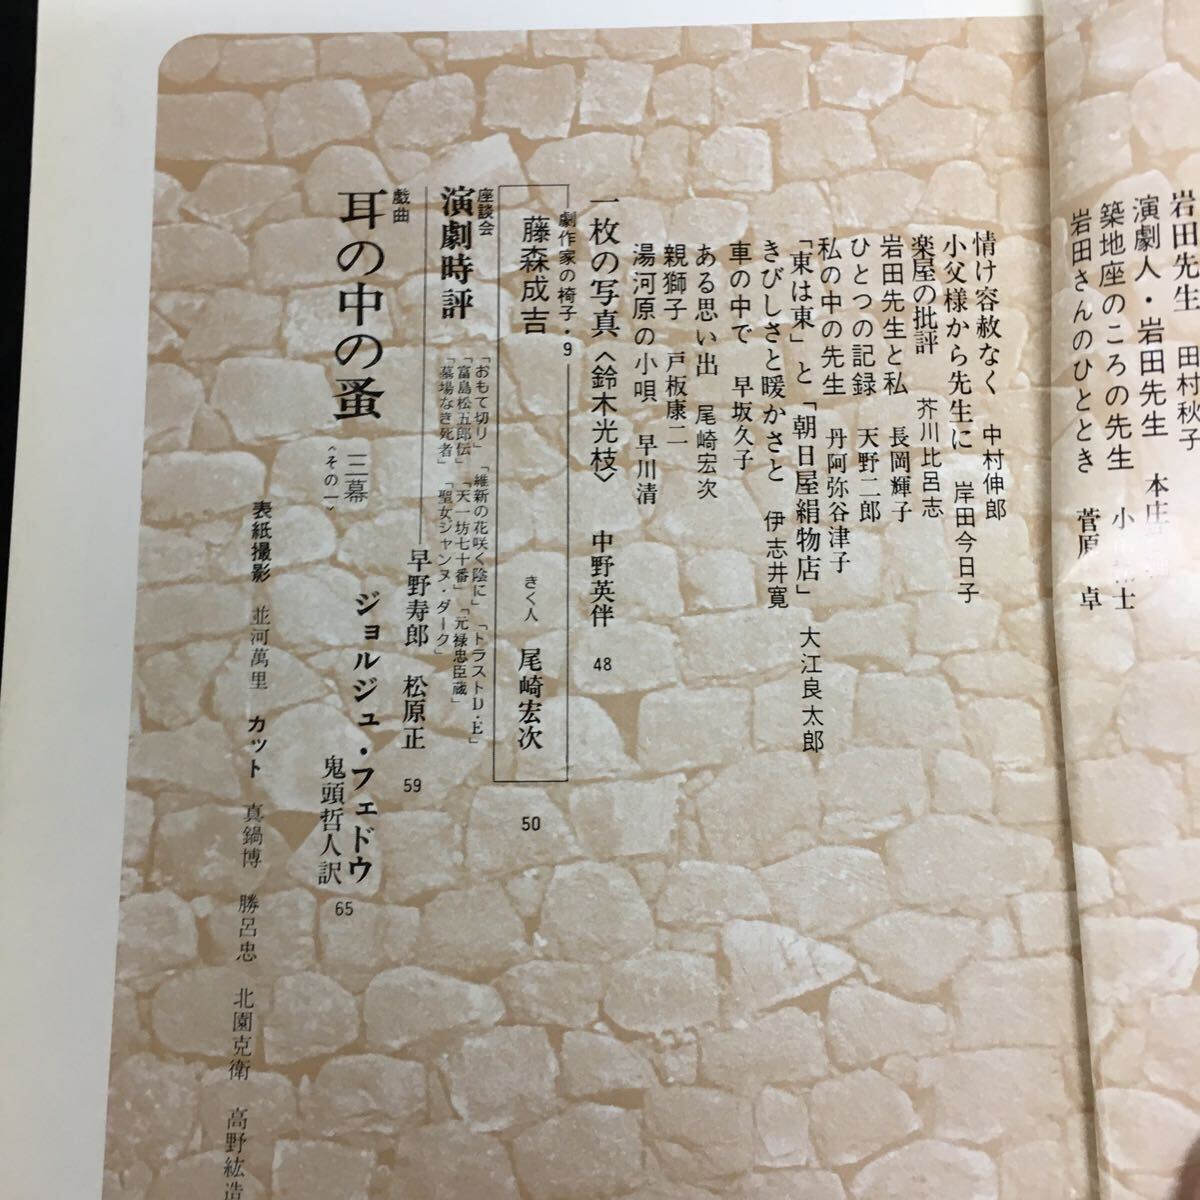 岩田先生 田村秋子
演劇人・岩田先生 本庄
築地座のころの先生 小 士
岩田さんのひととき 菅原 卓
情け容赦なく 中村伸郎
小父様から先生に 岸田今日子
楽屋の批評 芥川比呂志
岩田先生と私 長岡輝子
ひとつの記録 天野二郎
私の中の先生 丹阿弥谷津子
「東は東」と「朝日屋絹物店」 大江良太郎
きびしさと暖かさと 伊志井寛
車の中で 早坂久子
ある思い出 尾崎宏次
親獅子 戸板康二
湯河原の小唄 早川清
一枚の写真〈鈴木光枝〉 中野英伴 48
劇作家の椅子・9
藤森成吉 きく人 尾崎宏次 50
座談会
演劇時評
「おもて切り」「維新の花咲く陰に」「トラストD・E」
「富島松五郎伝」「天一坊七十番」「元禄忠臣蔵」
「墓場なき死者」「聖女ジャンヌ・ダーク」
早野寿郎 松原正 59
戯曲
耳の中の蚤 三幕
〈その一〉
ジョルジュ・フェドウ
鬼頭哲人訳 65
表紙撮影 並河萬里 カット 真鍋博 勝呂忠 北園克衛 高野紘造